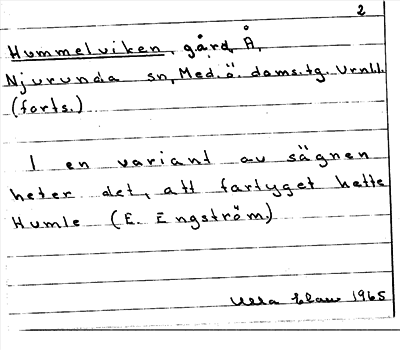 2
Hummelviken, gård, Å,
Njurunda sn, Med.ö. doms.tg. Vrnl.
(forts.)
I en variant av sägnen
heter det, att fartyget hette
Humle (E. Engström.)
Ulla 1965